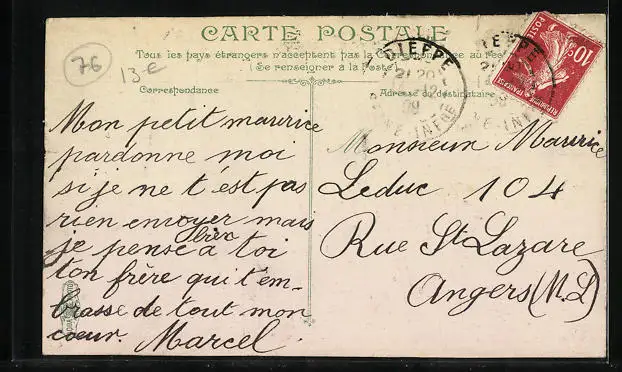 CARTE POSTALE
Tous les pays étrangers n'acceptent pas la Correspondance au
(Se renseigner à la Poste)
76
13 E
Correspondance
Adresse du destinataire
DIEPPE
21 20
12
09
NE INFRE
10c
POSTES
Mon petit maurice
pardonne moi
si je ne t'est pas
rien envoyer mais
je pense bien à toi
ton frère qui t'em-
brasse de tout mon
coeur. Marcel.
Monsieur Maurice
Leduc 104
Rue St Lazare
Angers (M.L)